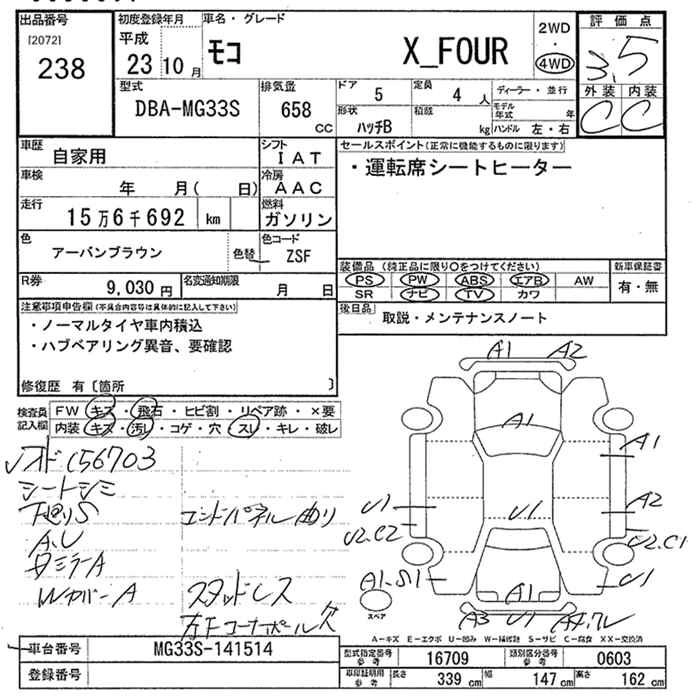 出品番号
[2072]
238
初度登録年月
平成
23年10月
車名・グレード
モコ
X_FOUR
2WD
・
4WD
評価点
3.5
外装 内装
C C
型式
DBA-MG33S
排気量
658
cc
ドア
5
定員
4 人
形状
ハッチB
積載
kg
ディーラー・並行
モデル年式 年
ハンドル 左・右
車歴
自家用
シフト
IAT
車検
年 月( 日)
冷房
AAC
走行
15万6千692 km
燃料
ガソリン
色
アーバンブラウン
色替
色コード
ZSF
R券
9,030円
名変通知期限
月 日
セールスポイント(正常に機能するものに限ります)
・運転席シートヒーター
装備品 (純正品に限り○をつけてください)
PS PW ABS エアB AW
SR ナビ TV カワ
新車保証書
有・無
後日品
取説・メンテナンスノート
注意事項申告欄(不具合内容等は具体的に記入して下さい)
・ノーマルタイヤ車内積込
・ハブベアリング異音、要確認
修復歴 有〔箇所 〕
検査員記入欄
FW キズ・飛石・ヒビ割・リペア跡・×要
内装 キズ・汚れ・コゲ・穴・スレ・キレ・破レ
156703
シートシミ
下廻りS
A、U
エンドパネル曲り
WカバーA
スタッドレス
左Fコーナーポール欠
A1 A2
A1
A1
A2
U1
U1
U2.C2
U2.C1
A1.S1
U1
A1
A3 U1
スペア
A-キズ E-エクボ U-凹み W-補修跡 S-サビ C-腐食 XX-交換済
車台番号
MG33S-141514
登録番号
型式指定番号
参考
16709
類別区分番号
参考
0603
車庫証明用
参考
長さ 339 cm
幅 147 cm
高さ 162 cm